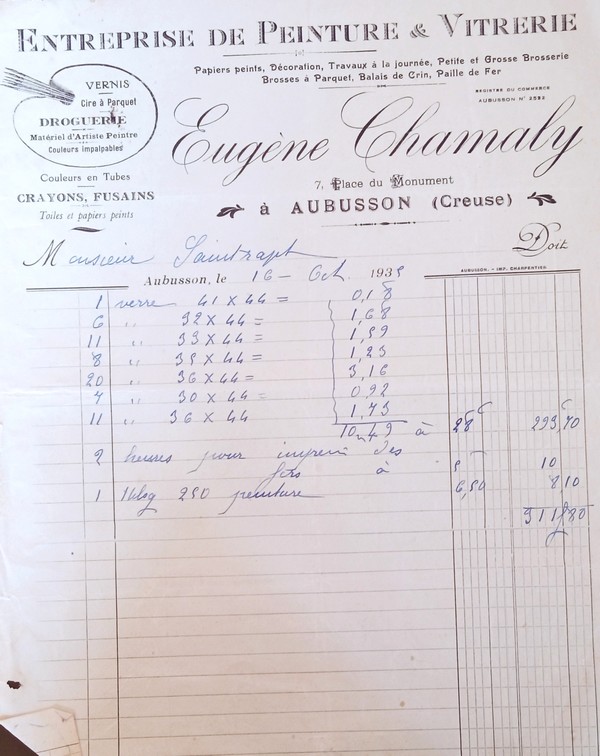 ENTREPRISE DE PEINTURE & VITRERIE
Papiers peints, Décoration, Travaux à la journée, Petite et Grosse Brosserie
Brosses à Parquet, Balais de Crin, Paille de Fer
VERNIS
Cire à Parquet
DROGUERIE
Matériel d'Artiste Peintre
Couleurs impalpables
Couleurs en Tubes
CRAYONS, FUSAINS
Toiles et papiers peints
REGISTRE DU COMMERCE
AUBUSSON N° 2582
Eugène Chamaly
7, Place du Monument
à AUBUSSON (Creuse)
Monsieur Saintrapt
Doit
Aubusson, le 16 - Oct. 1935
AUBUSSON. - IMP. CHARPENTIER
1 verre 41 X 44 = 0,18
6 " 32 X 44 = 1,68
11 " 33 X 44 = 1,59
8 " 35 X 44 = 1,23
20 " 36 X 44 = 3,16
7 " 30 X 44 = 0,92
11 " 36 X 44 1,73
10m49 à 28 293,70
2 heures pour des
fers à 5 10
1 Kilog 250 peinture 6,50 8 10
311,80